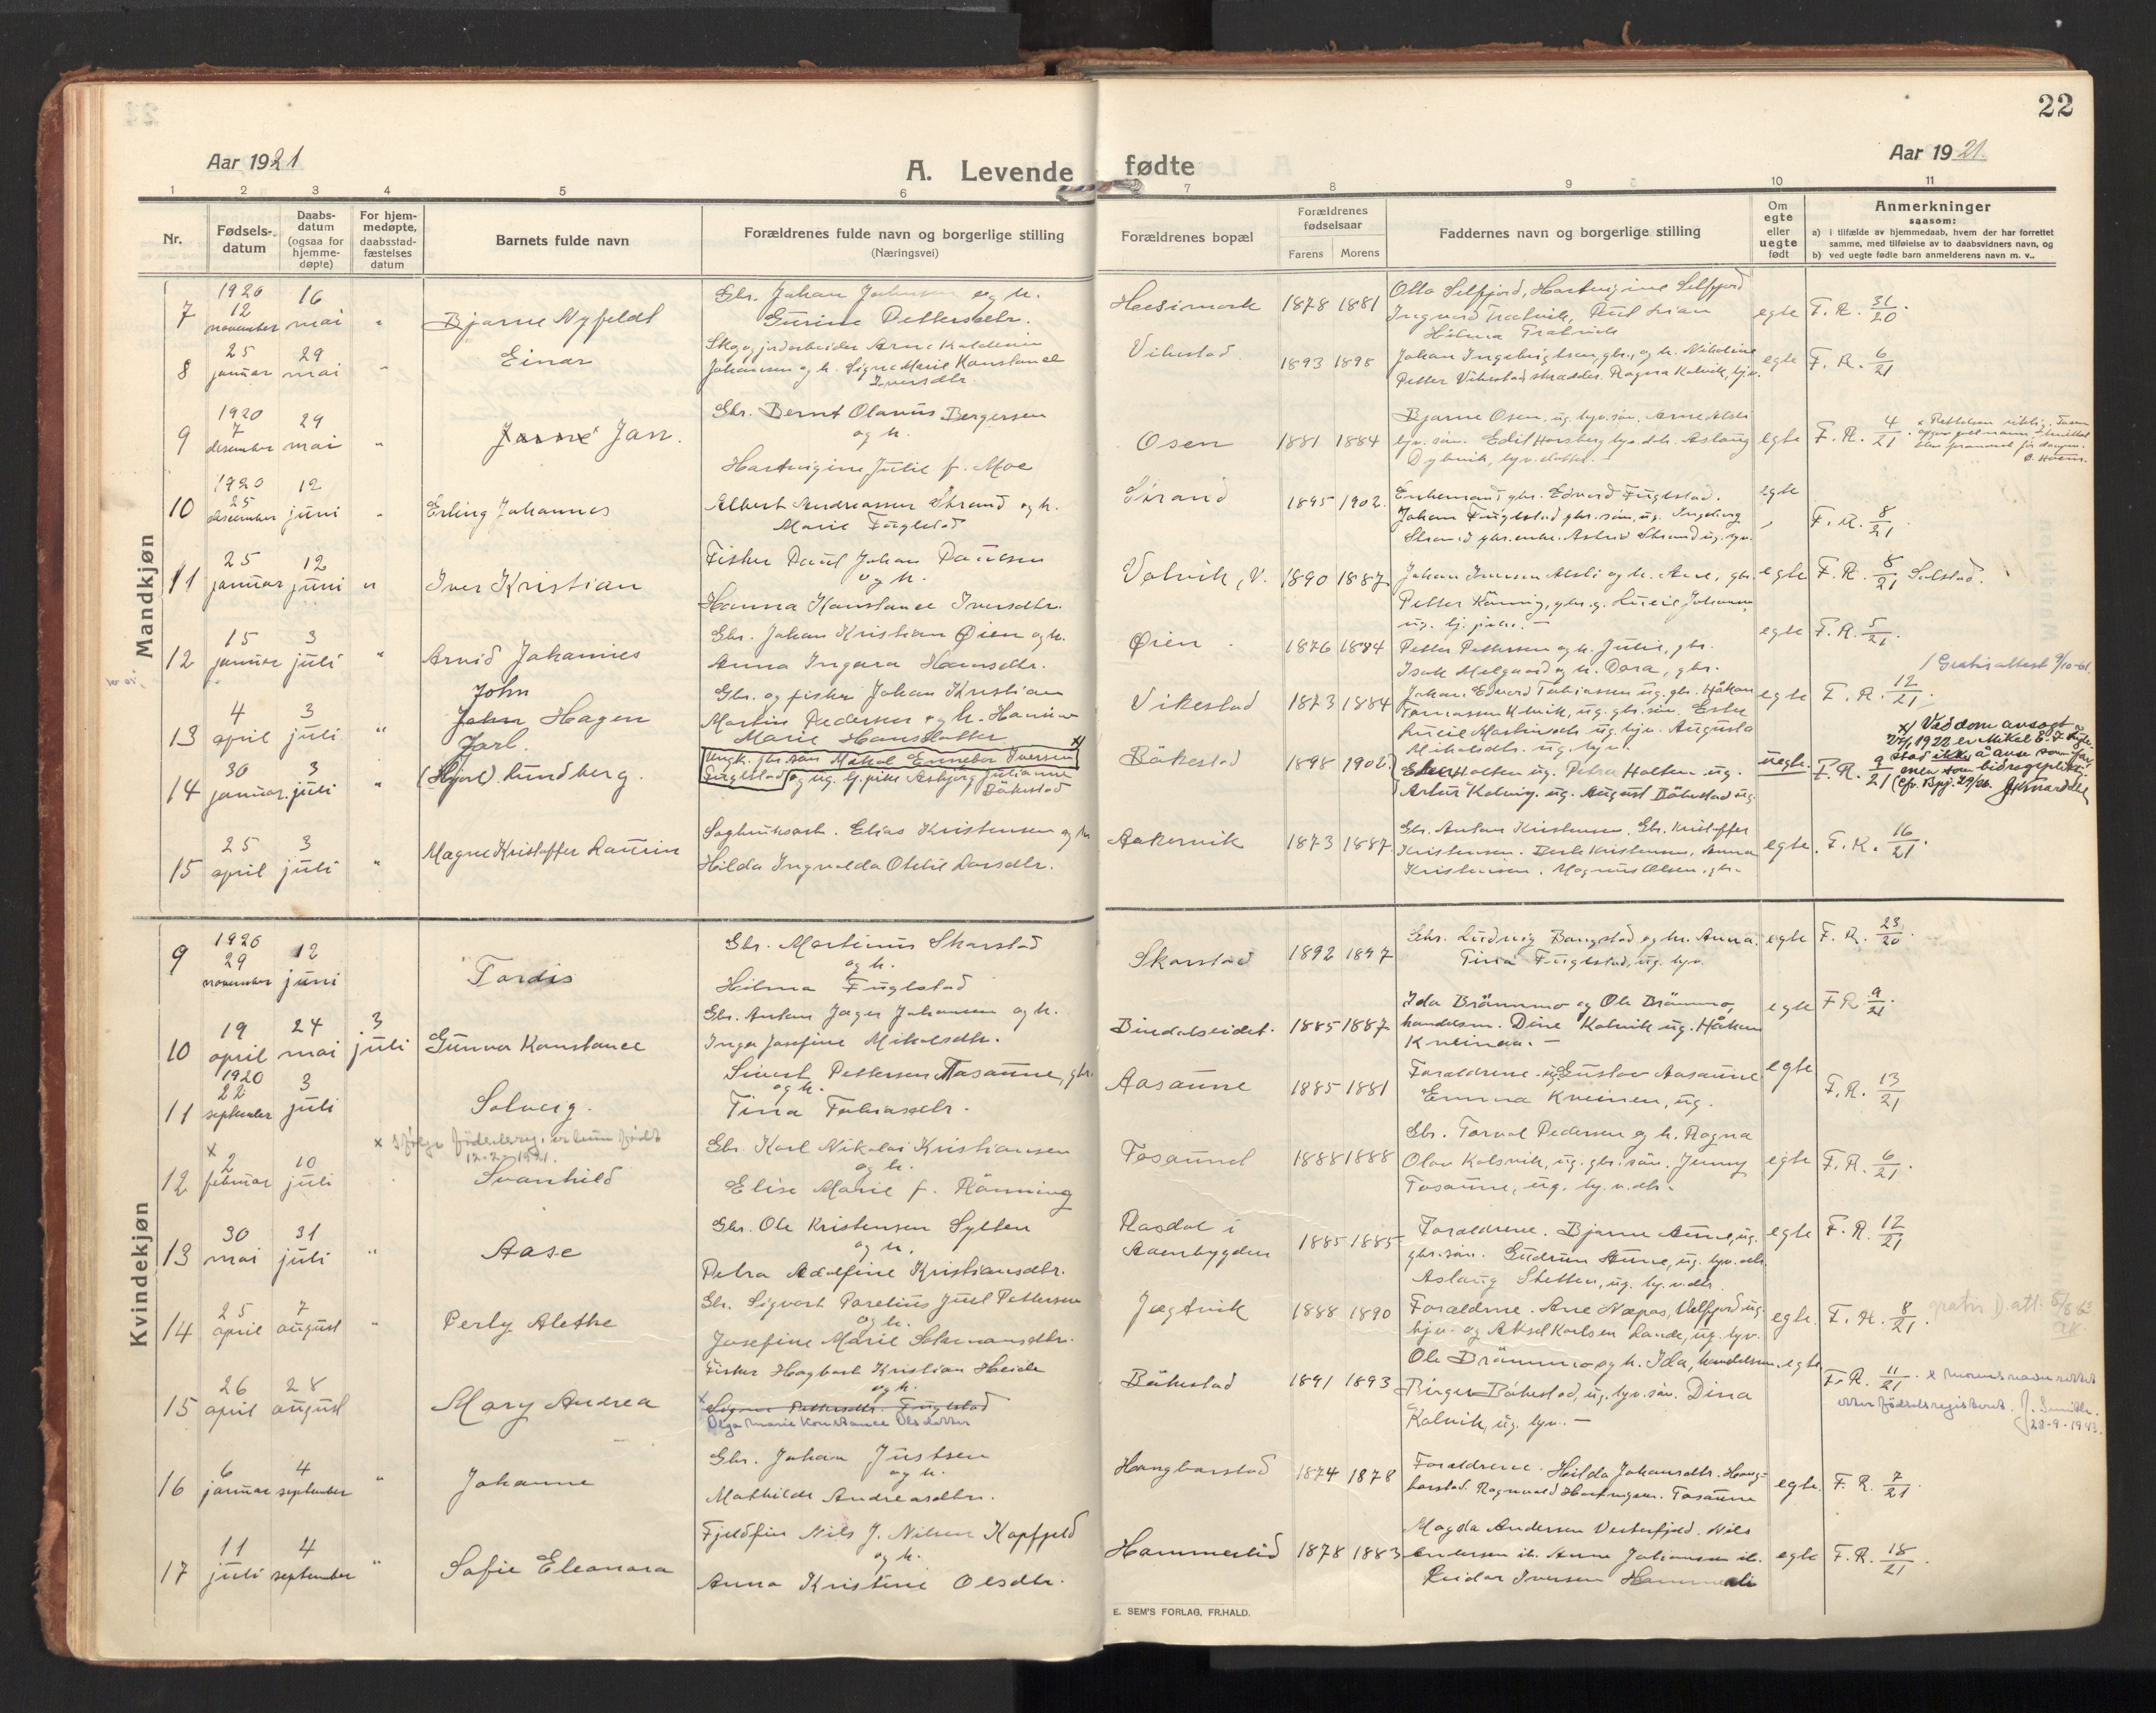 22
Aar 1921
A. Levende fødte
Aar 1921.
1 2 3 4 5 6 7 8 9 10 11
Nr.
Fødsels-datum
Daabs-datum (ogsaa for hjemme-døpte)
For hjem-medøpte, daabsstad-fæstelses datum
Barnets fulde navn
Forældrenes fulde navn og borgerlige stilling
(Næringsvei)
Forældrenes bopæl
Forældrenes fødselsaar
Farens Morens
Faddernes navn og borgerlige stilling
Om egte eller uegte født
Anmerkninger
saasom:
a) i tilfælde av hjemmedaab, hvem der har forrettet
samme, med tilføielse av to daabsvidners navn, og
b) ved uegte fødte barn anmelderens navn m. v..
Mandkjøn
7 1920 12 november 16 mai " Bjarne Nyfeldt
Gbr. Johan Johnsen og h.
Gurine Pettersdtr.
1878 1881
Otto Selfjord, Hartvigine Selfjord
Hilma
egte F. R. 31/20.
8 25 januar 29 mai " Einar
Johansen og h. Signe Marie Konstance
Iversdtr.
Vikestad 1893 1898
Johan Ingebrigtsen, gbr., og h. Nikoline
Petter Vikestad, skrædder. Ragna Kalvik, tj.v.
egte F. R. 6/21
9 1920 7 desember 29 mai " Jarne Jan.
Gbr. Bernt Olavus Bergersen
og h.
Hartvigine Julie f. Moe
Osen 1881 1884
Bjarne Osen, ug. tjv. søn. Arne
tjv. søn. Edit Horsberg tjv. dtr. Aslaug
Dybvik, tjv. datter.
egte F. R. 4/21.
10 1920 25 desember 12 juni " Erling Johannes
Albert Andreassen Strand og h.
Marie Fuglstad
Strand 1895 1902.
Enkemand gbr. Edvard Fuglstad.
Johan Fuglstad gbr. søn, ug. Ingeborg
Strand gbr. enke. Astrid Strand ug. tjv.
egte F. R. 8/21.
11 25 januar 12 juni " Iver Kristian
Fisker Paul Johan Paulsen
og h.
Hanna Konstance Iversdtr.
Valvik, V. 1890 1887
Johan Iversen Alsli og h. Ane, gbr.
Petter Rønnig, gbr. og Lucie Johansen,
ug. tj. pike. —
egte F. R. 8/21 Solstad.
12 15 januar 3 juli " Arvid Johannes
Gbr. Johan Kristian Øien og h.
Anna Ingara Hansdtr.
Øien. 1876 1884
Petter Pettersen og h. Julie, gbr.
Isak Melgaard og h. Dora, gbr.
egte F. R. 5/21.
/ Gratis attest 9/10-61.
13 4 april 3 juli " John
John Hagen
Gbr. og fisker Johan Kristian
Martin Pedersen og h. Hanna
Marie Hansdatter
Vikestad 1873 1884
Johan Edvard Tobiassen ug. gbr. Håkon
Tomassen Kalvik, ug. gbr. søn, Ester
Lucie Martinsdtr. ug. tjv. Augusta
Mikalsdtr. ug. tjv.
egte F. R. 12/21.
14 30 januar 3 juli " Jarl.
(Hjarl) Lundberg.
Ungk. gbr. søn Mikal Ennebor Iversen x)
Fuglestad og ug. tj. pike Asbjørg Julianne
Båkestad
Båkestad 1898 1902.
Holten ug. Petra Holten ug.
Artur Kalvig. ug. August Båkestad ug.
uegte. F. R. 9/21
x) Ved dom avsagt
27/1 1922 er Mikal E. I. Fugle-
stad ikke å anse som far,
men som bidragspliktig
(cfr. Bpj. 29/26.
15 25 april 3 juli " Magne Kristoffer Laurin
Sagbruksarb. Elias Kristensen og h.
Hilda Ingvalda Otelie Larsdtr.
Aakervik 1873 1887
Gbr. Anton Kristensen. Gbr. Kristoffer
Kristensen. Berte Kristensen, Anna
Kristensen. Magnus Olsen, gbr.
egte. F. R. 16/21.
Kvindekjøn
9 1920 29 november 12 juni Tordis
Gbr. Martinus Skarstad
og h.
Hilma Fuglstad
Skarstad 1892 1897
Gbr. Ludvig Bangstad og h. Anna.
Tina Fuglestad, ug. tjv.
egte F. R. 23/20.
10 19 april 24 mai 3 juli Gunvor Konstance
Gbr. Anton Jæger Johansen og h.
Inga Josefine Mikalsdtr.
Bindalseidet. 1885 1887
Ida Brämmo og Ole Brämmo,
handelsm. Dine Kalvik ug. Håkon
Kveinaa. —
egte F R 9/21.
11 1920 22 september 3 juli Solveig.
Sivert Pettersen Aasaune, gbr.
og h.
Tina Tobiasdtr.
Aasaune 1885 1881
Forældrene. ug. Gustav Aasaune
Emma Kveinen, ug.
egte F. R. 13/21
x Ifølge fødselsreg. er hun født
12-2-1921.
12 x 2 februar 10 juli Svanhild
Gbr. Karl Nikolai Kristiansen
og h.
Elise Marie f. Rönning
Tosaunet 1888 1888
Gbr. Torval Pedersen og h. Ragna
Olav Kalsvik, ug. gbr. søn. Jenny
Tosaune, ug. tj. v. dtr.
egte F. R. 6/21.
13 30 mai 31 juli " Aase
Gbr. Ole Kristensen Sylten
og h.
Petra Adolfine Kristiansdtr.
Aasdal i
Aaenbygden 1885 1885
Forældrene. Bjarne Aune, ug.
gbr. søn. Gudrun Aune, ug. tjv. dtr.
Aslaug Sletten, ug. tj. v. dtr.
egte F. R. 12/21
14 25 april 7 august " Perly Alethe
Gbr. Sigvart Parelius Juel Pettersen
og h.
Josefine Marie Salamonsdtr.
Jægtvik 1888 1890
Forældrene. Ane Næpas, Velfjord ug.
tj.v. og Aksel Karlsen Lande, ug. tjv.
egte. F. R. 8/21.
gratis D. att. 5/8 63
15 26 april 28 august Mary Andrea
Fisker Hagbart Kristian Heide
og h.
x Signe Pettersdtr. Fuglstad
Olga Marie Konstance Olsdatter
Båkestad 1891 1893
Ole Brämmo og h. Ida, handelsm.
Birger Båkestad, ug. tjv. søn. Dina
Kalvik, ug. tjv. —
egte F. R. 11/21. x Morens navn rettet
etter fødselsregisteret. J.
28-9-1943.
16 6 januar 4 september " Johanne
Gbr. Johan Justsen
og h.
Mathilde Andreasdtr.
Hangbarstad 1874 1878
Forældrene. Hilda Johansdtr. Hang-
barstad. Ragnvald Hartvigsen. Tosaune
egte. F. R. 7/21.
17 11 juli 4 september " Sofie Eleonora
Fjeldfin Nils J. Nilsen Kapfjeld
og h.
Anna Kristine Olsdtr.
Hammerlid 1878 1883
Magda Andersen Vesterfjeld. Nils
Andersen ib. Anne Johansen ib.
Reidar Iversen Hammerli
egte F. R. 18/21.
E. SEM'S FORLAG, FR.HALD.